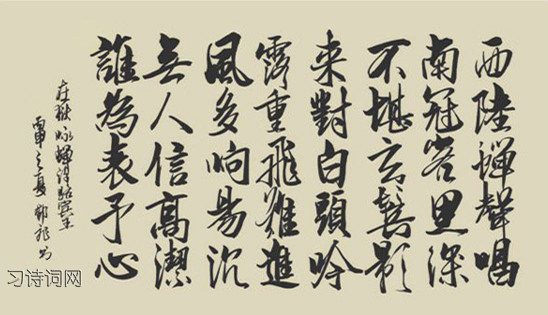 西陸蟬聲唱
南冠客思深
不堪玄鬢影
來對白頭吟
露重飛難進
風多响易沉
無人信高潔
誰為表予心
在獄咏蟬駱賓王
丙申之夏書
习诗词网